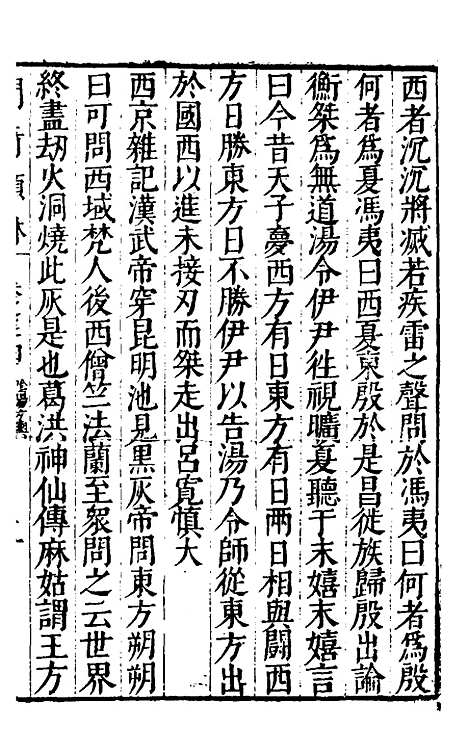 西者沉沉將滅若疾雷之聲問於馮夷曰何者爲殷
何者爲夏馮夷曰西夏東殷於是昌徙族歸殷出論
衡桀爲無道湯令伊尹徃視曠夏聽于末嬉末嬉言
曰今昔天子夢西方有日東方有日兩日相與鬭西
方日勝東方日不勝伊尹以告湯乃令師從東方出
於國西以進未接刃而桀走出呂覽愼大
西京雜記漢武帝穿昆明池見黑灰帝問東方朔朔
曰可問西域梵人後西僧竺法蘭至衆問之云世界
終盡劫火洞燒此灰是也葛洪神仙傳麻姑謂王方